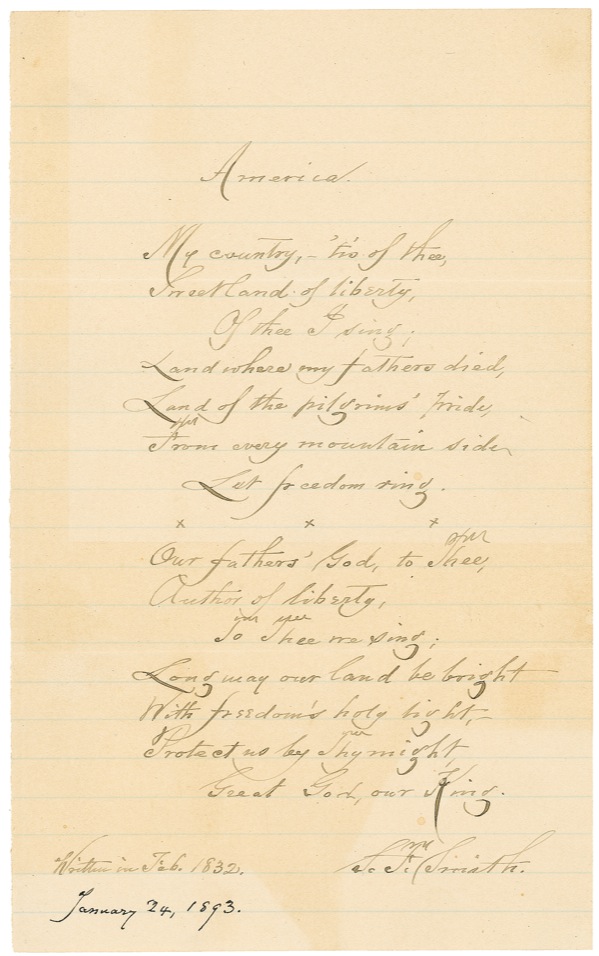 America.
My country, – 'tis of thee,
Sweet land of liberty,
Of thee I sing;
Land where my fathers died,
Land of the pilgrims' pride,
From every mountain side
Let freedom ring.
x x x
Our fathers' God, to Thee,
Author of liberty,
To Thee we sing;
Long may our land be bright
With freedom's holy light, –
Protect us by Thy might,
Great God, our King.
S. F. Smith.
Written in Feb. 1832.
January 24, 1893.